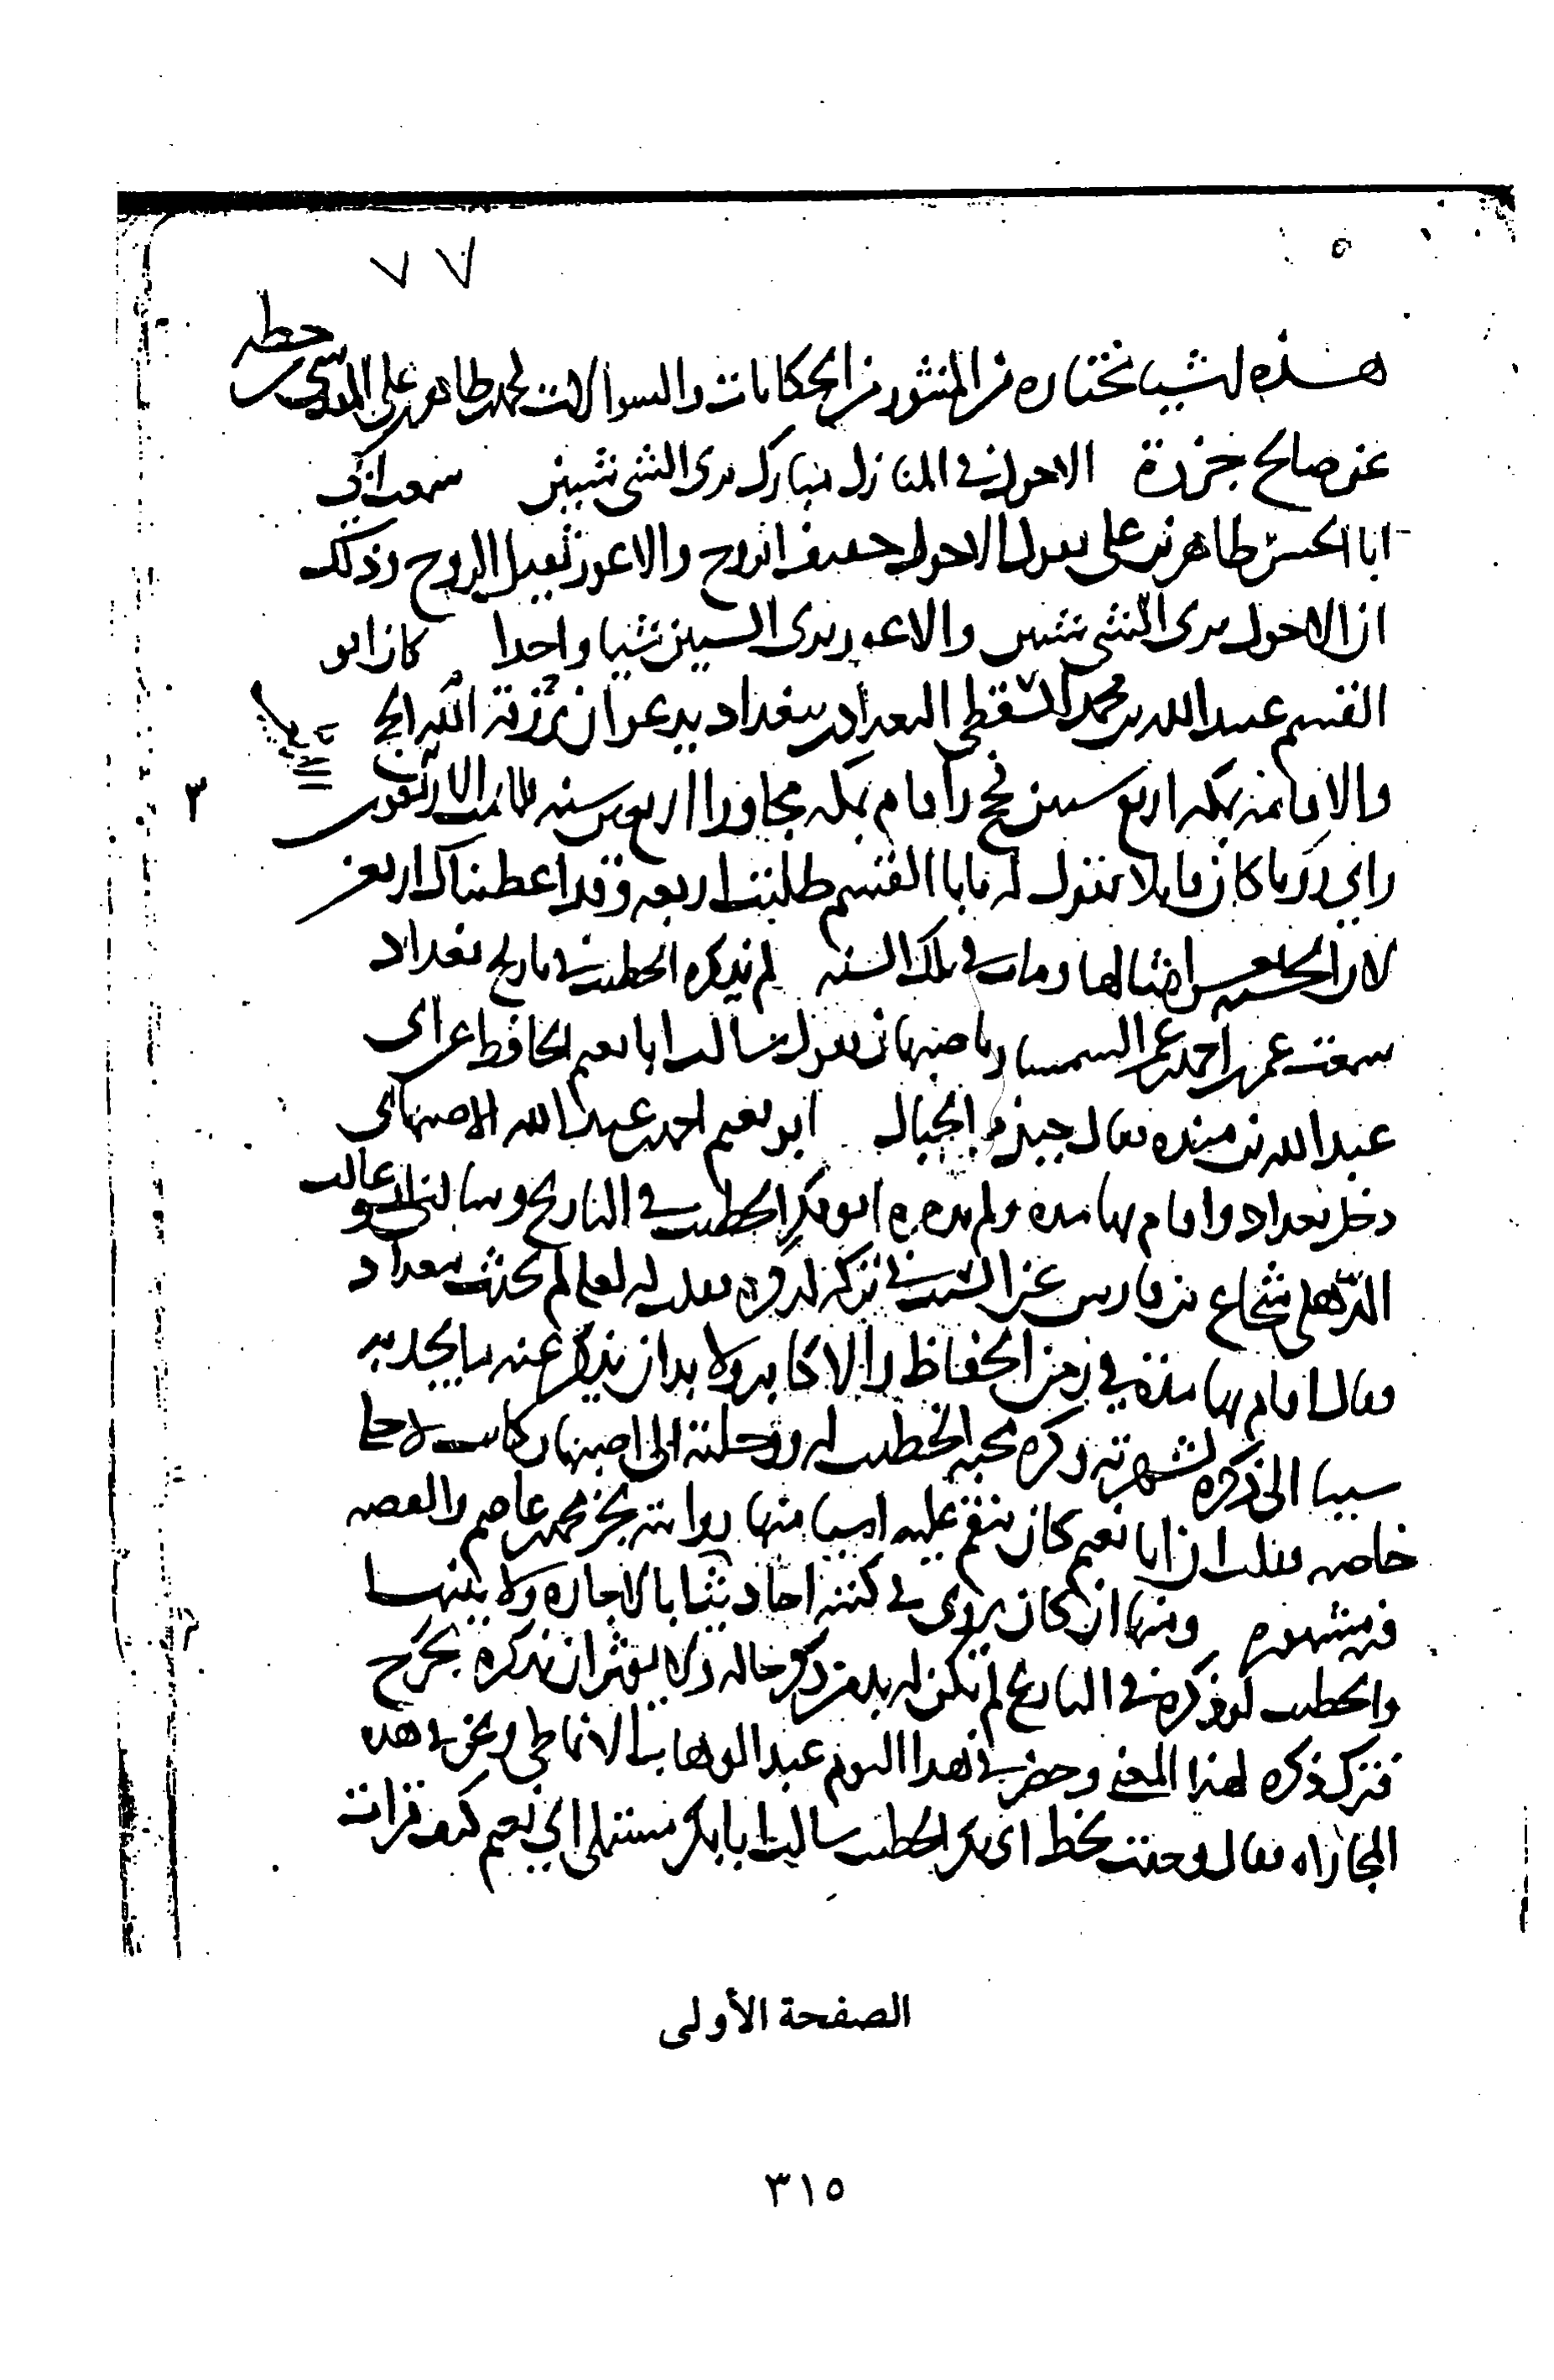 ٧٧
هذه اشيا مختاره من المنثور من الحكايات والسوالات لمحمد بن طاهر بن على المقدسى بخطه
عن صالح جزرة الاحول في المنازل مبارك يرى الشى شيئين سمعت اخي
ابا الحسن طاهر بن على يقول الاحول خفيف الروح والاعور ثقيل الروح وذلك
ان الاحول يرى الشى شيئين والاعور يرى الشيئين شيا واحدا كان ابو
القسم عبيد الله بن محمد السقطى البغدادى ببغداد يدعو ان يرزقه الله الحج
والاقامه بمكه اربع سنين فحج واقام بمكه مجاورا اربعين سنه فلما تمت الاربعون
راى رويا كان قايلا يقول له يا ابا القسم طلبت اربعه وقد اعطيناك اربعين
لان الحسنه بعشر امثالها ومات في تلك السنه لم يذكره الخطيب في تاريخ بغداد
سمعت عمر بن احمد بن عمر السمسار باصبهان يقول سالت ابا نعيم الحافظ عن ابى
عبد الله بن منده فقال جبل من الجبال ابو نعيم احمد بن عبد الله الاصبهانى
دخل بغداد واقام بها مده ولم يذكره ابو بكر الخطيب في التاريخ وسالنى ابو غالب
الذهلى شجاع بن فارس عن السبب في تركه لذكره فقلت له لعله لم يحدث ببغداد
فقال اقام بها مدة في زمن الحفاظ والاكابر ولا بد ان يذكر عنه ما يحدث به
سيما الى ذكره لشهرته وكره محبه الخطيب له ورحلته الى اصبهان كانت لاجله
خاصه فقلت ان ابا نعيم كان ينقم عليه اشيا منها روايته بجز محمد بن عاصم والقصه
فيه مشهوره ومنها انه كان يروى في كتبه احاديثا بالاجازه ولا يبينها
والخطيب لو ذكره في التاريخ لم يكن له بد من ذكر حاله ولا يوثر ان يذكره بجرح
فترك ذكره لهذا المعنى وحضر في هذا اليوم عبد الوهاب الانماطى ونحن في هذه
المجاراه فقال وجدت بخط ابى بكر الخطيب سالت ابا بكر مستملى ابي نعيم كيف قرات
٣
الصفحة الأولى
٣١٥